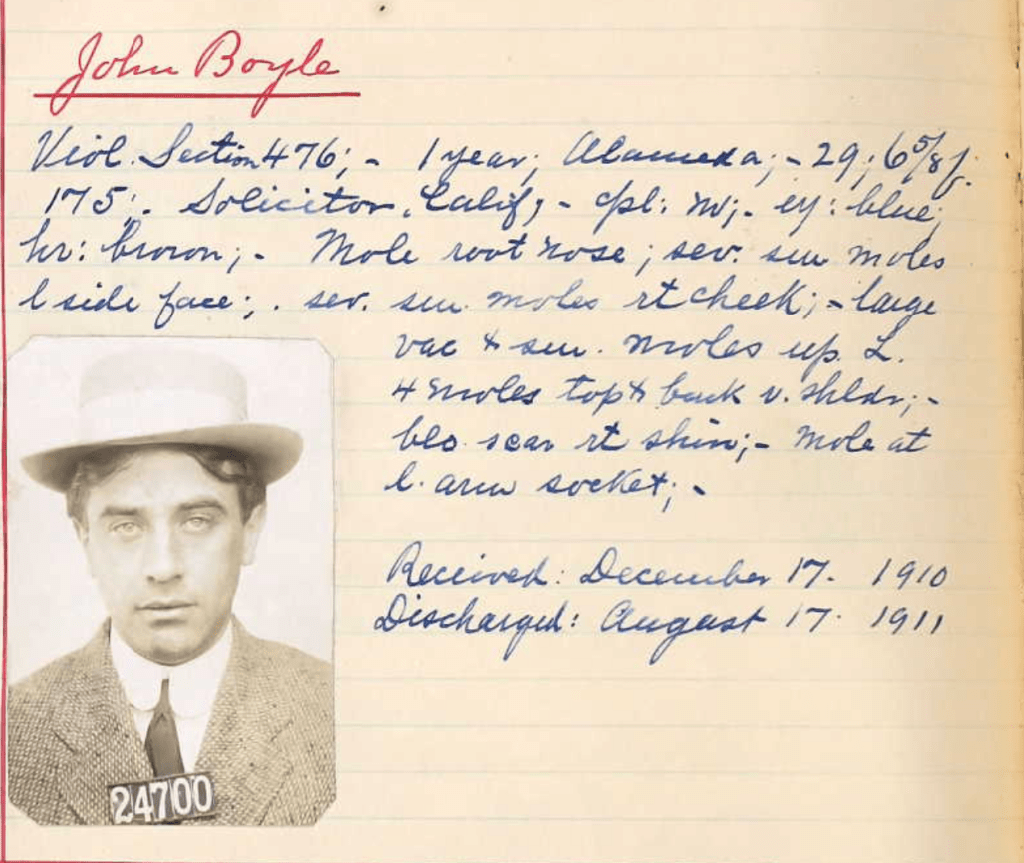 John Boyle
Viol. Section 476; - 1 year; Alameda; - 29; 6 5/8 f.
175; . Solicitor, Calif; - cpl: m; - ey: blue;
hr: brown; - Mole root nose; sev. sm moles
l side face; . sev. sm. moles rt cheek; - large
vac & sm. moles up. L.
4 moles top & back r. shldr; -
blo. scar rt shin; - mole at
l. arm socket; -
Received: December 17. 1910
Discharged: August 17. 1911
24700